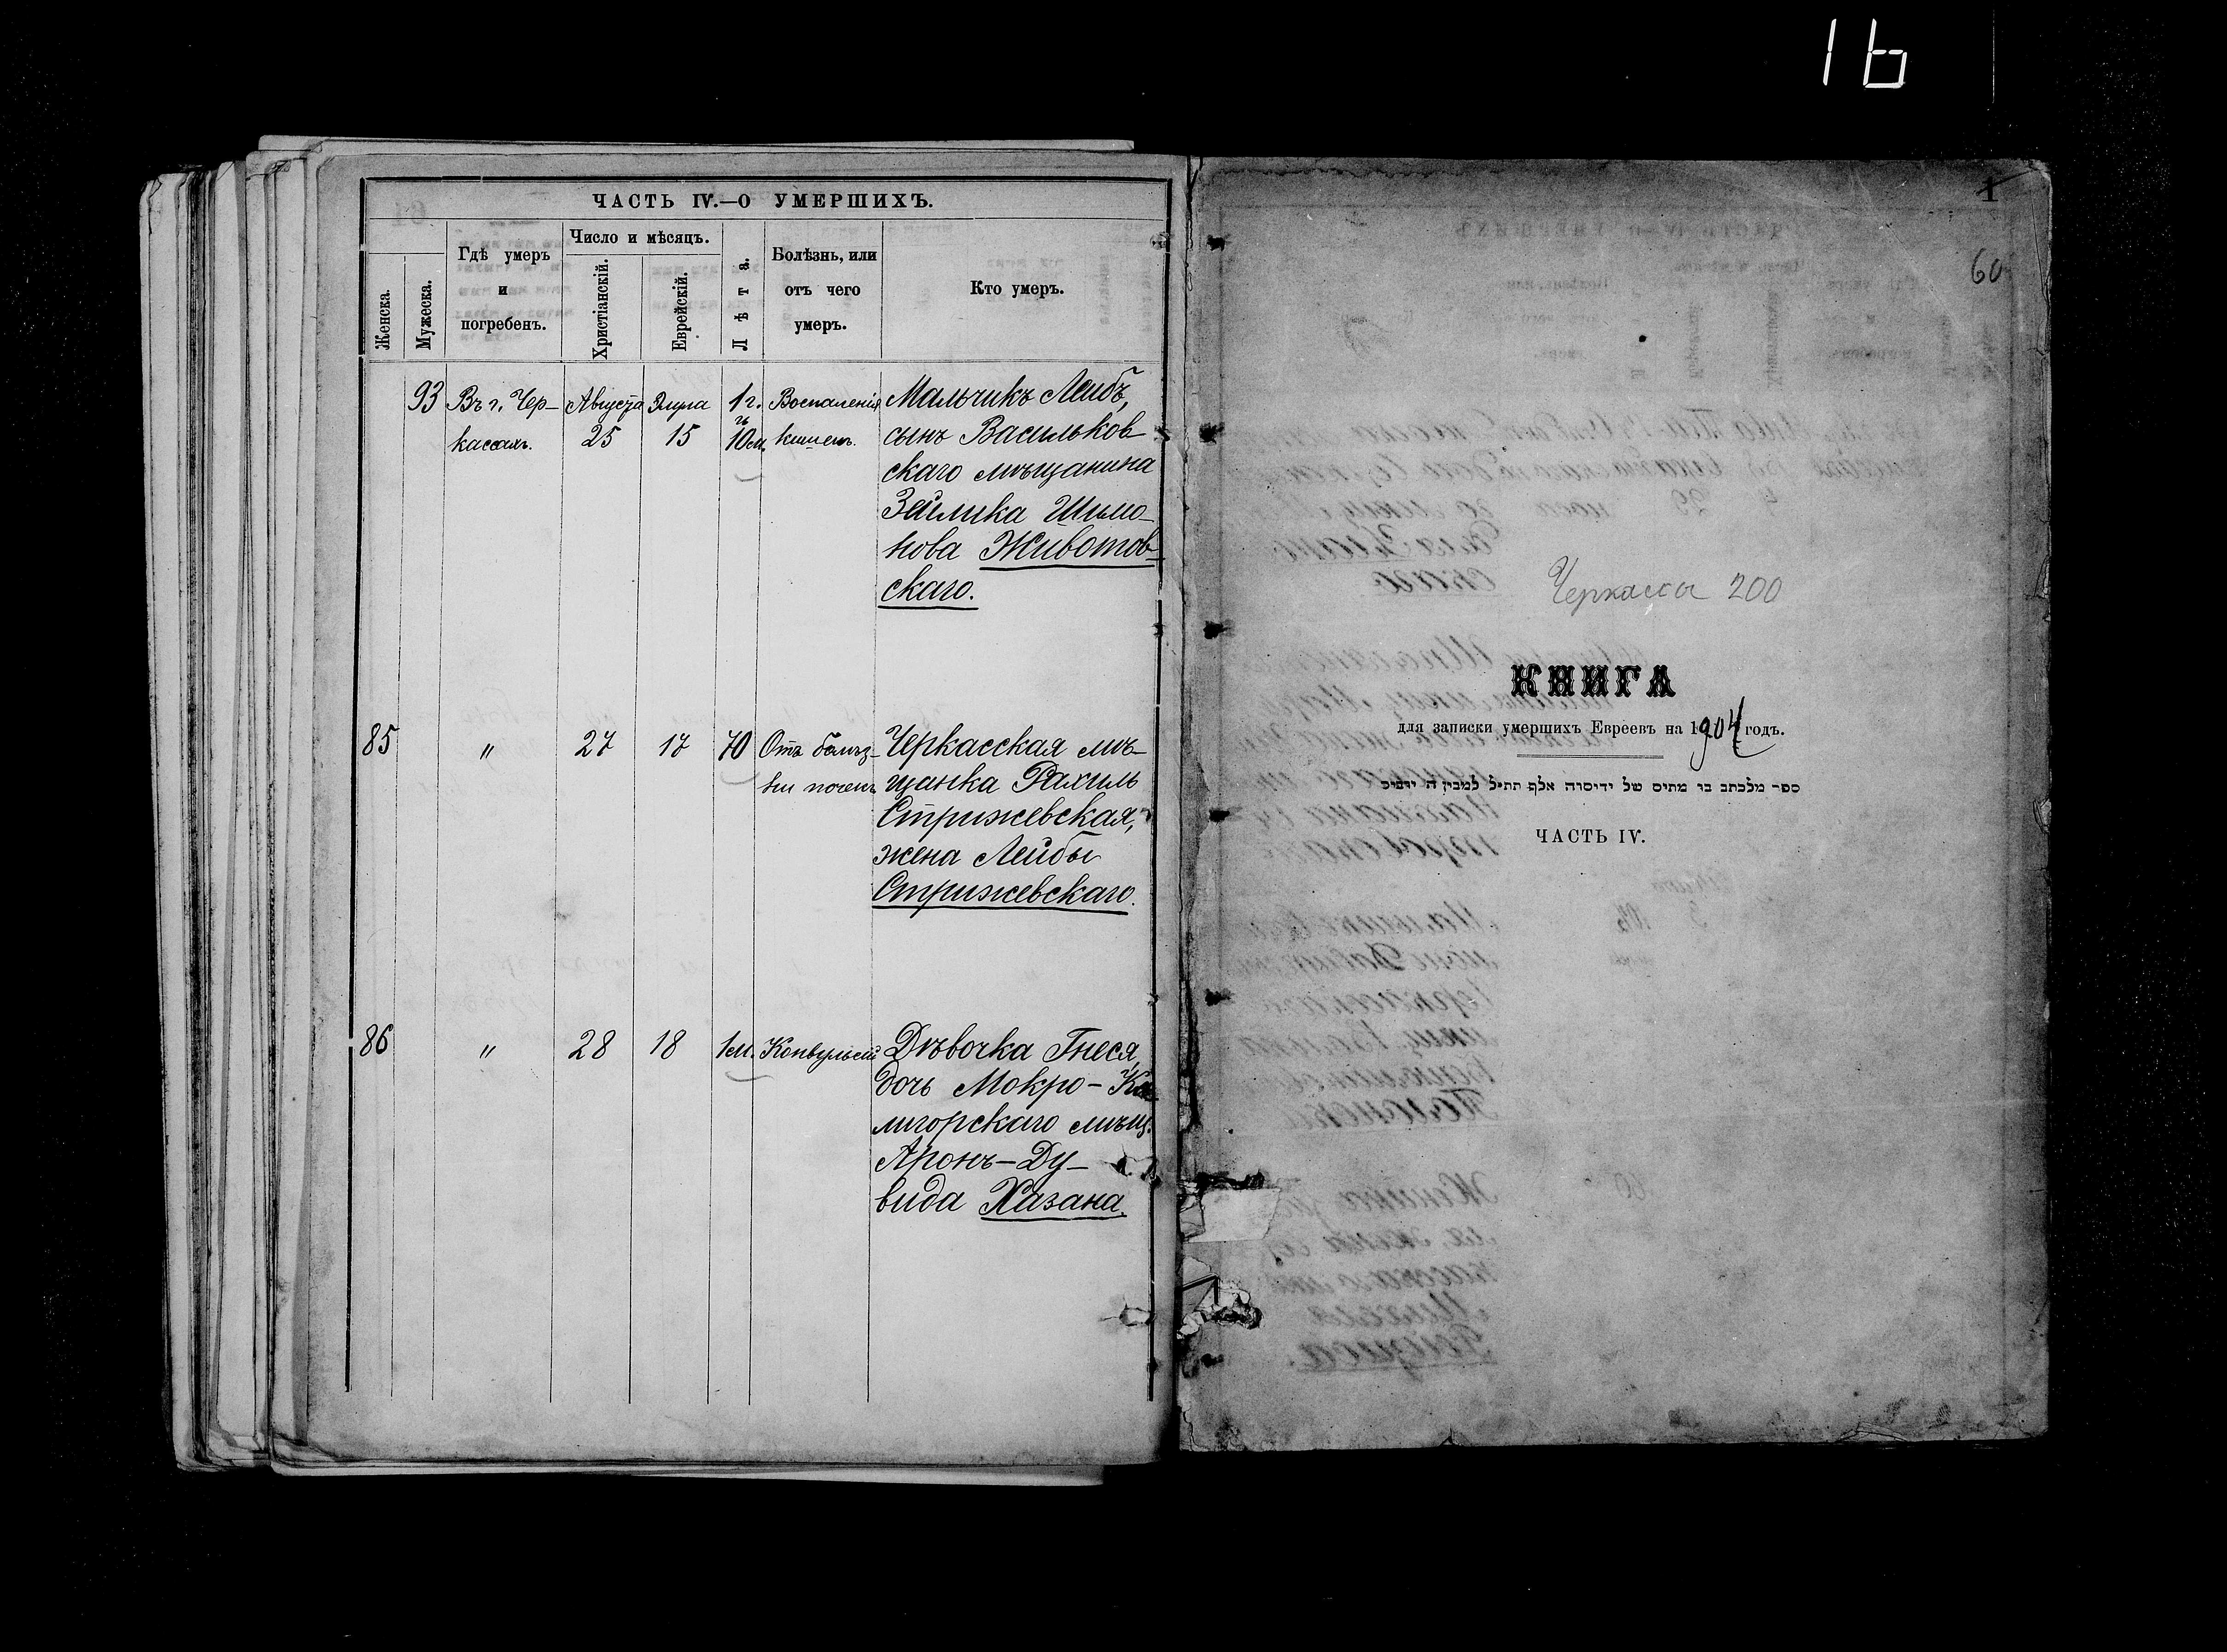 16
ЧАСТЬ IV.—О УМЕРШИХЪ.
Женска.
Мужеска.
Гдѣ умеръ
и
погребенъ.
Число и мѣсяцъ.
Христіанскій.
Еврейскій.
Лѣта.
Болѣзнь, или
отъ чего
умеръ.
Кто умеръ.
93 Въ г. Чер- Августа Элула 1 г. Воспаленія Мальчикъ Лейбъ,
кассахъ. 25 15 10 м. кишекъ. сынъ Васильков-
скаго мѣщанина
Зейлика Шимо-
нова Животов-
скаго.
85 " 27 17 70 Отъ болѣз- Черкасская мѣ-
ни почекъ щанка Рахиль
Стрижевская,
жена Лейбы
Стрижевскаго.
86 " 28 18 1 м. Конвульсій Дѣвочка Гнеся,
дочь Мокро-Ка-
лигорскаго мѣщ.
Аронъ-Ду-
вида Хазана.
1
60
Черкассы 200
КНИГА
для записки умершихъ Евреевъ на 1904 годъ.
ספר מלכתב בו מתים של ידיסוה אלף תתיל למבין ה
ЧАСТЬ IV.